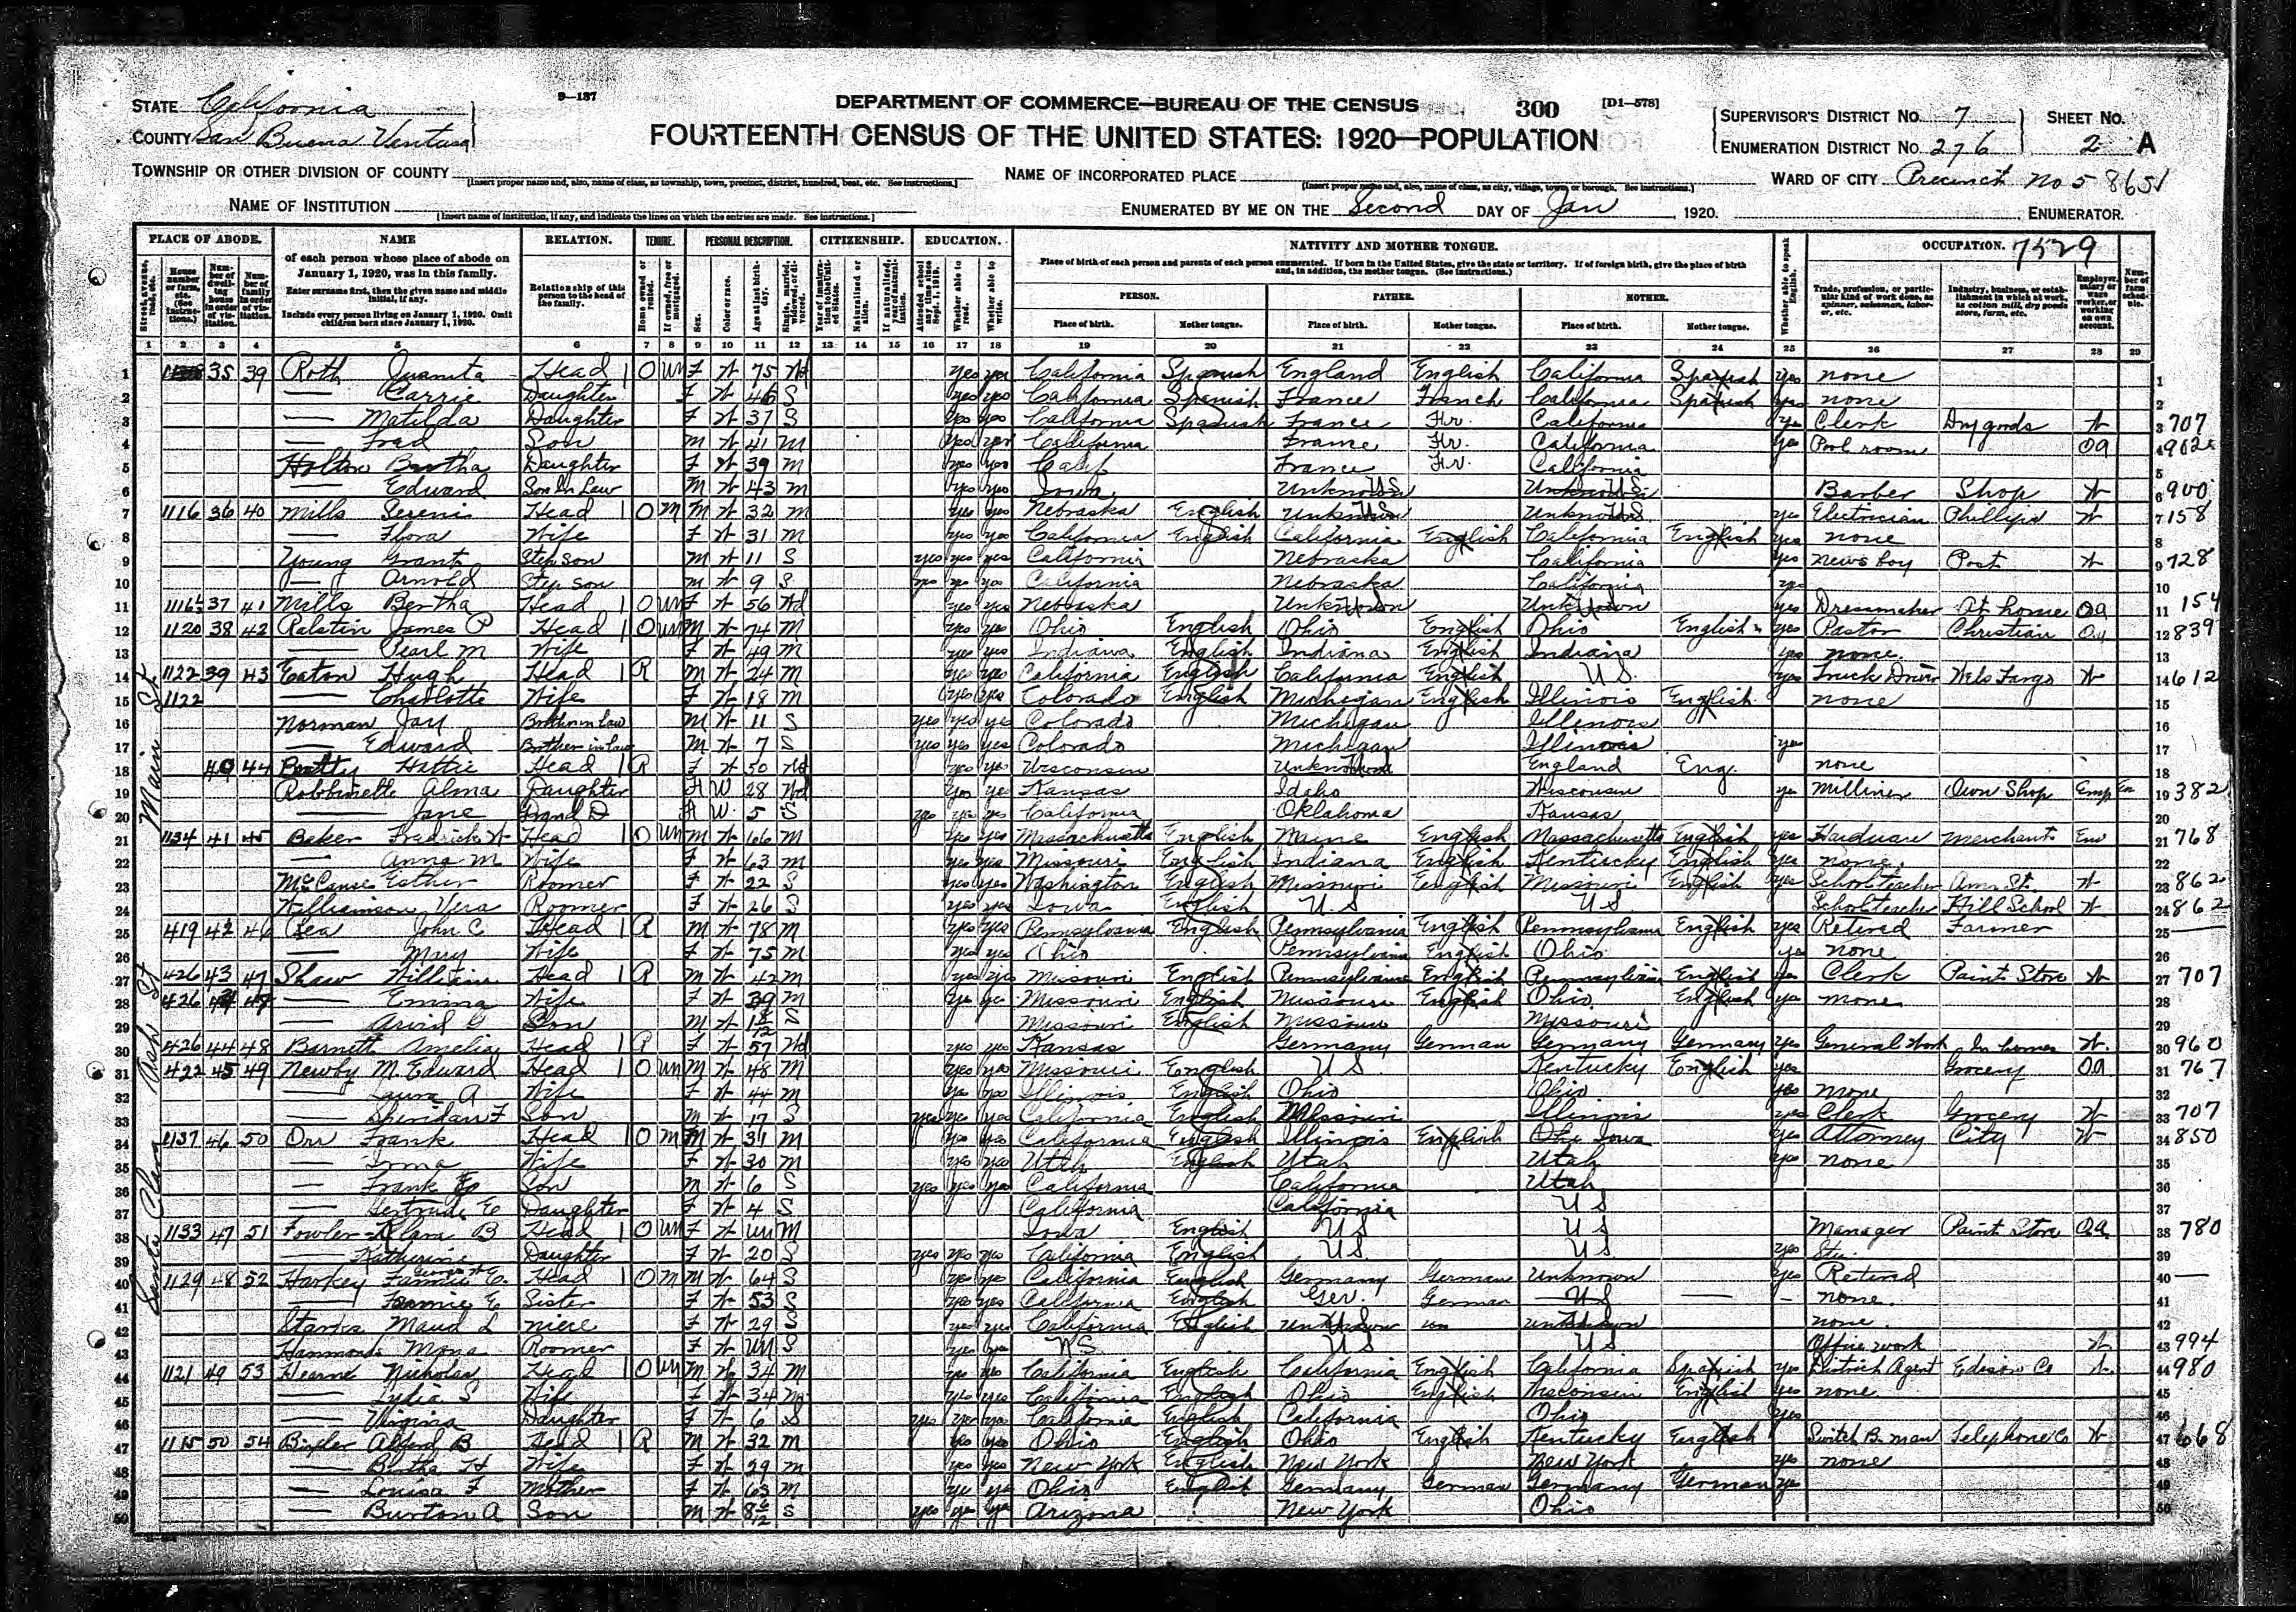 9—137
STATE California
DEPARTMENT OF COMMERCE—BUREAU OF THE CENSUS 300 [D1—578]
COUNTY San Buena Ventura
FOURTEENTH CENSUS OF THE UNITED STATES: 1920—POPULATION
SUPERVISOR'S DISTRICT No. 7 SHEET No.
ENUMERATION DISTRICT No. 276 2 A
TOWNSHIP OR OTHER DIVISION OF COUNTY
[Insert proper name and, also, name of class, as township, town, precinct, district, hundred, beat, etc. See instructions.]
NAME OF INCORPORATED PLACE
[Insert proper name and, also, name of class, as city, village, town, or borough. See instructions.]
WARD OF CITY Precinct No 5 8651
NAME OF INSTITUTION
[Insert name of institution, if any, and indicate the lines on which the entries are made. See instructions.]
ENUMERATED BY ME ON THE Second DAY OF Jan, 1920. ENUMERATOR.
PLACE OF ABODE. NAME RELATION. TENURE. PERSONAL DESCRIPTION. CITIZENSHIP. EDUCATION. NATIVITY AND MOTHER TONGUE. OCCUPATION. 7529
of each person whose place of abode on January 1, 1920, was in this family.
Enter surname first, then the given name and middle initial, if any.
Include every person living on January 1, 1920. Omit children born since January 1, 1920.
Relationship of this person to the head of the family.
Place of birth of each person and parents of each person enumerated. If born in the United States, give the state or territory. If of foreign birth, give the place of birth and, in addition, the mother tongue. (See instructions.)
PERSON. FATHER. MOTHER.
Place of birth. Mother tongue. Place of birth. Mother tongue. Place of birth. Mother tongue.
1 2 3 4 5 6 7 8 9 10 11 12 13 14 15 16 17 18 19 20 21 22 23 24 25 26 27 28 29
Main St
Ash St
Santa Clara
1 35 39 Roth Juanita Head 1 O Un F W 75 Wd yes yes California Spanish England English California Spanish yes none
2 — Carrie Daughter F W 46 S yes yes California Spanish France French California Spanish yes none
3 — Matilda Daughter F W 37 S yes yes California Spanish France Fr. California yes Clerk Dry goods W 707
4 — Fred Son M W 41 M yes yes California France Fr. California yes Pool room OA
5 Holton Bertha Daughter F W 39 M yes yes Calif France Fr. California
6 — Edward Son In Law M W 43 M yes yes Iowa Unknown US Unknown US Barber Shop W 900
7 1116 36 40 Mills Head 1 O M M W 32 M yes yes Nebraska English Unknown US Unknown US yes Electrician Phillips W 158
8 — Flora Wife F W 31 M yes yes California English California English California English yes none
9 Young Grant Step son M W 11 S yes yes yes California Nebraska California yes News boy Post W 728
10 — Arnold Step son M W 9 S yes yes yes California Nebraska California yes
11 1116½ 37 41 Mills Bertha Head 1 O Un F W 56 Wd yes yes Nebraska Unknown Unknown yes Dressmaker At home OA 154
12 1120 38 42 Ralstin James P Head 1 O Un M W 74 M yes yes Ohio English Ohio English Ohio English yes Pastor Christian OA 839
13 — Pearl M Wife F W 49 M yes yes Indiana English Indiana English Indiana yes none.
14 1122 39 43 Eaton Hugh Head 1 R M W 24 M yes yes California English California English U.S. yes Truck Driver Wels Fargo W 612
15 1122 — Charlotte Wife F W 18 M yes yes Colorado English Michegan English Illinois English none
16 Norman Jay Brother in law M W 11 S yes yes yes Colorado Michigan Illinois
17 — Edward Brother in law M W 7 S yes yes yes Colorado Michigan Illinois yes
18 40 44 Beatty Hattie Head 1 R F W 50 Wd yes yes Wisconsin Unknown England Eng. none
19 Robbinette Alma Daughter F W 28 Wd yes yes Kansas Idaho Wisconsin yes Milliner Own Shop Emp 382
20 — Jane Grand D F W 5 S California Oklahoma Kansas
21 1134 41 45 Baker Fredrick W Head 1 O Un M W 66 M yes yes Massachusetts English Maine English Massachusetts English yes Hardware Merchant Em 768
22 — Anna M Wife F W 63 M yes yes Missouri English Indiana English Kentucky English yes none.
23 McCanse Esther Roomer F W 22 S yes yes Washington English Missouri English Missouri English yes School teacher W 862
24 Williamson Vera Roomer F W 26 S yes yes Iowa English U.S US School teacher Hill School W 862
25 419 42 46 Lea John C Head 1 R M W 78 M yes yes Pennsylvania English Pennsylvania English Pennsylvania English yes Retired Farmer
26 — Mary Wife F W 75 M yes yes Ohio Pennsylvania English Ohio yes none
27 426 43 47 Shaw William Head 1 R M W 42 M yes yes Missouri English Pennsylvania English Pennsylvania English yes Clerk Paint Store W 707
28 426 — Emma Wife F W 39 M yes yes Missouri English Missouri English Ohio English yes none
29 — Son M W S Missouri English Missouri Missouri
30 426 44 48 Barnett Amelia Head 1 R F W 57 Wd yes yes Kansas Germany German Germany Germany yes General Work In homes W. 960
31 422 45 49 Newby M. Edward Head 1 O Un M W 48 M Missouri English U S Kentucky English yes Grocery OA 767
32 — Laura A Wife F W 44 M yes yes Illinois English Ohio Ohio yes none
33 — Sheridan F Son M W 17 S yes yes yes California English Missouri Illinois yes Clerk Grocery W 707
34 1137 46 50 Orr Frank Head 1 O M M W 31 M yes yes California English Illinois English Iowa yes Attorney City W 850
35 — Irma Wife F W 30 M yes yes Utah English Utah Utah yes none
36 — Frank Son M W 6 S yes yes yes California California Utah
37 — Gertrude E Daughter F W 4 S California California U S
38 1133 47 51 Fowler Klara B Head 1 O Un F W Un M Iowa English U S U S Manager Paint Store OA 780
39 — Katherine Daughter F W 20 S yes yes yes California English U.S. U S yes Stu.
40 1129 48 52 Harkey Head 1 O M M W 64 S yes yes California English Germany German Unknown yes Retired
41 — Fannie E Sister F W 53 S yes yes California English Ger. German U S — none.
42 Maud L niece F W 29 S yes yes California English Unknown Unknown none.
43 Hammonds Mona Roomer F W Un S yes yes US U S U S Office work W 994
44 1121 49 53 Hearne Nicholas Head 1 O Un M W 34 M yes yes California English California English California Spanish yes District Agent Edison Co W. 980
45 — Lydia S Wife F W 34 M yes yes California English Ohio English Wisconsin English yes none
46 — Virginia Daughter F W 6 S yes yes yes California English California Ohio yes
47 1115 50 54 Alford B Head 1 R M W 32 M yes yes Ohio English Ohio English Kentucky English Switch B. man Telephone Co W 668
48 — Bertha H Wife F W 29 M yes yes New York English New York New York yes none
49 — Louisa F Mother F W 63 M yes yes Ohio English Germany German Germany German yes
50 — Burton A Son M W 8 S yes yes yes Arizona New York Ohio